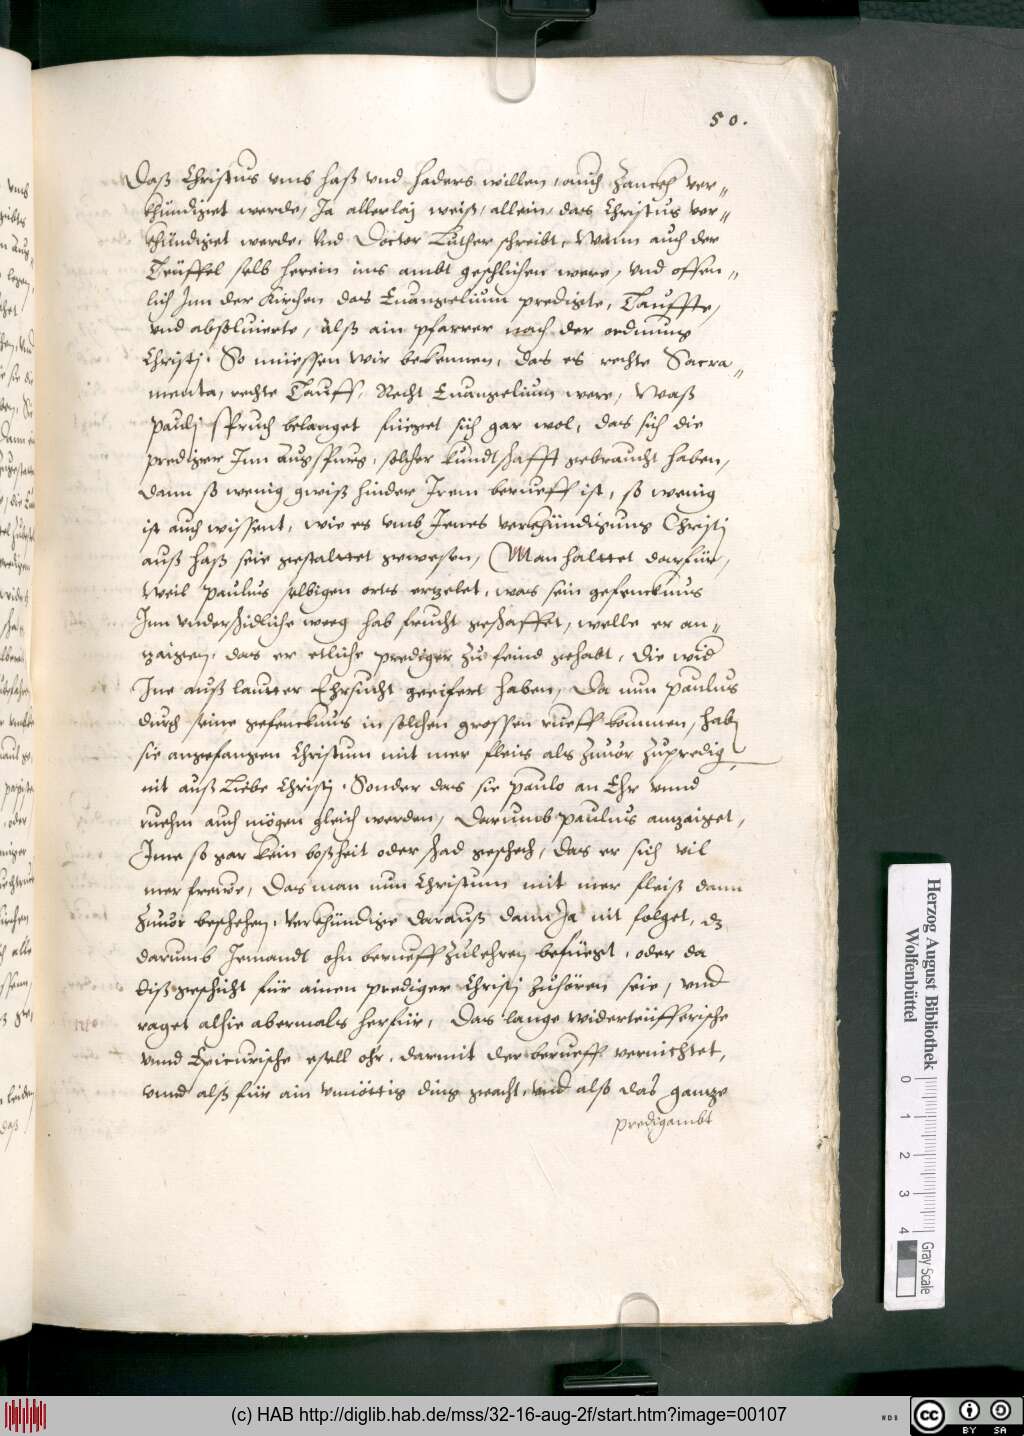 50.
Daß Christus vmb haß vnd haders willen, auch Zanckh ver„
khündiget werde, Ja allerlaj weiß, allein, das Christus ver„
khündiget werde, Vnd Doctor Luther schreibt, Wann auch der
Teüffel selb herein ins ambt geschlichen were, vnd offen„
lich Jnn der Kirchen das Euangelium predigte, Tauffte,
vnd absoluierte, Alß ain pfarrer nach der ordnung
Christj. So müessen wir bekennen, das es rechte Sacra„
menta, rechte Tauff, Recht Euangelium were, Waß
paulj spruch belanget füeget sich gar wol, das sich die
prediger Jnn Augspurg, solcher kundtschafft gebraucht haben,
dann so wenig gwiß hinder Jrem berueff ist, so wenig
ist auch wissent, wie es vmb Jenes verkhündigung Christj
auß haß seie gestalttet gewesen, Man halttet darfür,
weil paulus selbigen orts erzelet, was sein gefencknus
Jnn vnderschidliche weeg hab frucht geschaffet, welle er an„
zaigen, das er etliche prediger zu feind gehabt, die wid
Jne auß lautter Ehrsucht geeifert haben, Da nun paulus
durch seine gefencknus in solchen grossen rueff kommen, habē
sie angefangen Christum mit mer fleis als Zuuor Zupredig
nit auß Liebe Christj. Sonder das sie paulo an Ehr vnnd
ruehm auch mögen gleich werden, Darumb paulus anzaiget,
Jme so gar kein boßheit oder schad geschech, das er sich vil
mer frewe, Das man nun Christum mit mer fleiß dann
Zuuor beschehen, verkhündige darauß dann Ja nit folget, dz
darumb Jemandt ohn berueff Zulehren befüegt, oder da
diß geschicht für ainen prediger Christj Zuhören seie, vnd
raget alhie abermals herfür, Das lange widerteüfferische
vnnd Epicurische esell ohr, darmit der berueff vernichtet,
vnnd alß für ain vnnöttig ding geacht, vnd also das gantze
predigambt
Herzog August Bibliothek
Wolfenbüttel
0 1 2 3 4
Gray Scale
(c) HAB http://diglib.hab.de/mss/32-16-aug-2f/start.htm?image=00107
cc BY SA